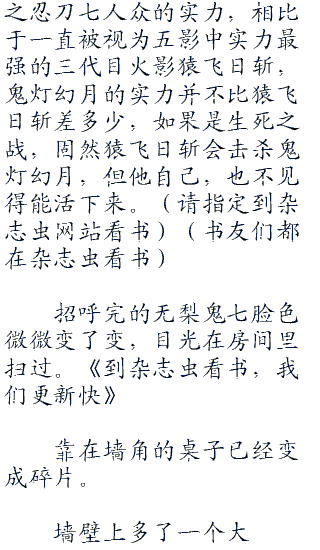 之忍刀七人众的实力，相比
于一直被视为五影中实力最
强的三代目火影猿飞日斩，
鬼灯幻月的实力并不比猿飞
日斩差多少，如果是生死之
战，固然猿飞日斩会击杀鬼
灯幻月，但他自己，也不见
得能活下来。（请指定到杂
志虫网站看书）（书友们都
在杂志虫看书）
招呼完的无梨鬼七脸色
微微变了变，目光在房间里
扫过。《到杂志虫看书，我
们更新快》
靠在墙角的桌子已经变
成碎片。
墙壁上多了一个大